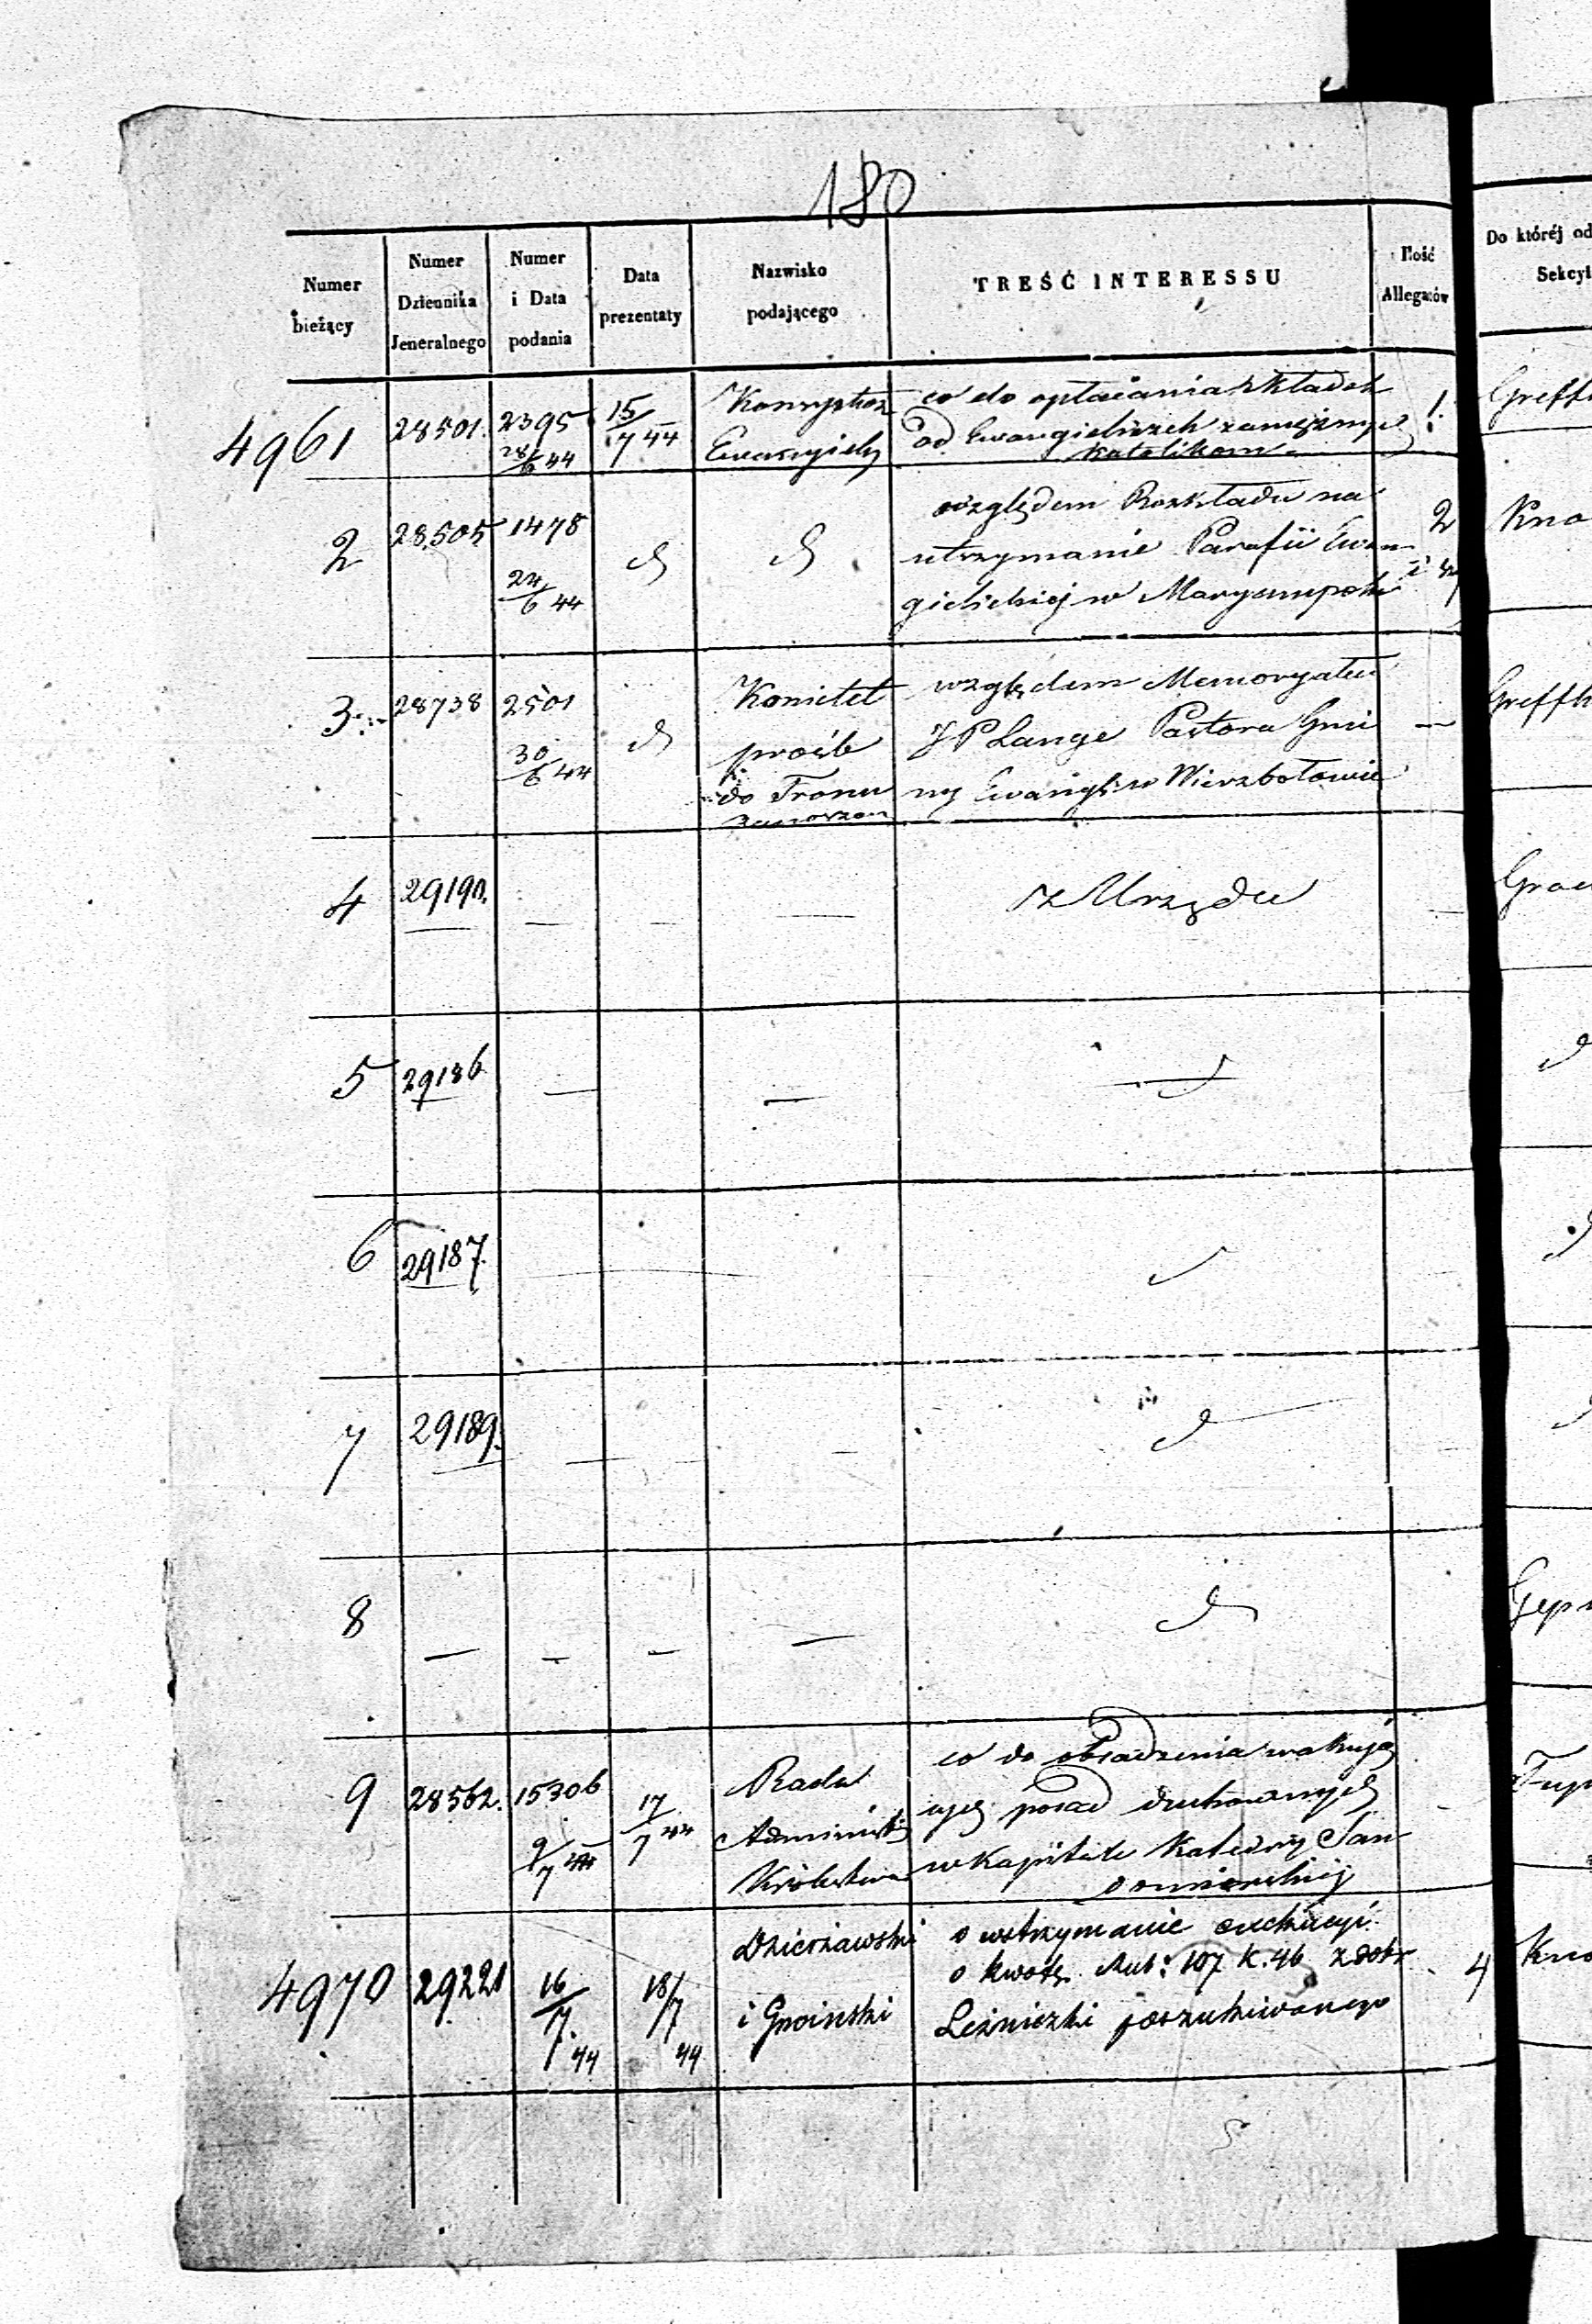 180
Numer bieżący
Numer Dziennika Jeneralnego
Numer i Data podania
Data prezentaty
Nazwisko podającego
TREŚĆ INTERESSU
Ilość Allegatów
Do któréj od
Sekcyi
4961
28501.
2395
28/6 44
15/7 44
Konsystorz
Ewangielij
co do opłacania składek
od Ewangieliczek zamężnych
Katolikom
1.
Greffk
2
28505
1478
24/6 44
względem Rozkładu na
utrzymanie Parafii Ewan
gielickiej w Maryampolu
2
Kno
3
28738
2501
30/6 44
Komitet
próśb
do Tronu
zanoszon
względem Memoryału
JP Lange Pastora Gmi
ny Ewangk w Wierzbołowie
—
Greffk
4
29190.
—
—
—
z Urzędu
—
5
29186
—
—
6
29187.
7
29189.
—
—
—
8
—
—
—
—
9
28562.
15306
9/7 44
17/7 44
Rada
Administ
Królestwa
co do obsadzenia wakują
cych posad duchownych
w Kapitule Katedry San
domierskiej
4970
29221
16/7. 44
18/7 44
Dzierżawski
i Gnoiński
o wstrzymanie exekucyi
o kwotę Rub: 107 K. 46 z dóbr
Leźniczki poszukiwanego
4
Kno